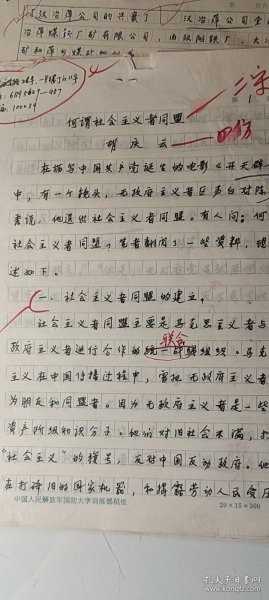 汉冶萍公司的兴衰了
汉冶萍公司全
冶萍煤铁厂矿有限公司，由汉阳铁厂、大冶
100034
三宋
何谓社会主义者同盟
胡庆云
四仿
在描写中国共产党诞生的电影《开天辟
中，有一个镜头，无政府主义者区声白对陈
秀说，他退出社会主义者同盟。有人问：何
社会主义者同盟？笔者翻阅了一些资料，现
述如下。
一、社会主义者同盟的建立。
社会主义者同盟主要是马克思主义者与
联合
政府主义者进行合作的统一战线组织。马克
主义在中国传播过程中，曾把无政府主义者
为朋友和同盟者。因为无政府主义者是一些
资产阶级知识分子。他们对旧社会不满，打
“社会主义”的旗号，反对中国反动政府。他
在打碎旧的国家机器，和揭露劳动人民受压
中国人民解放军国防大学训练部稿纸
20×15=300
孔夫子旧书网